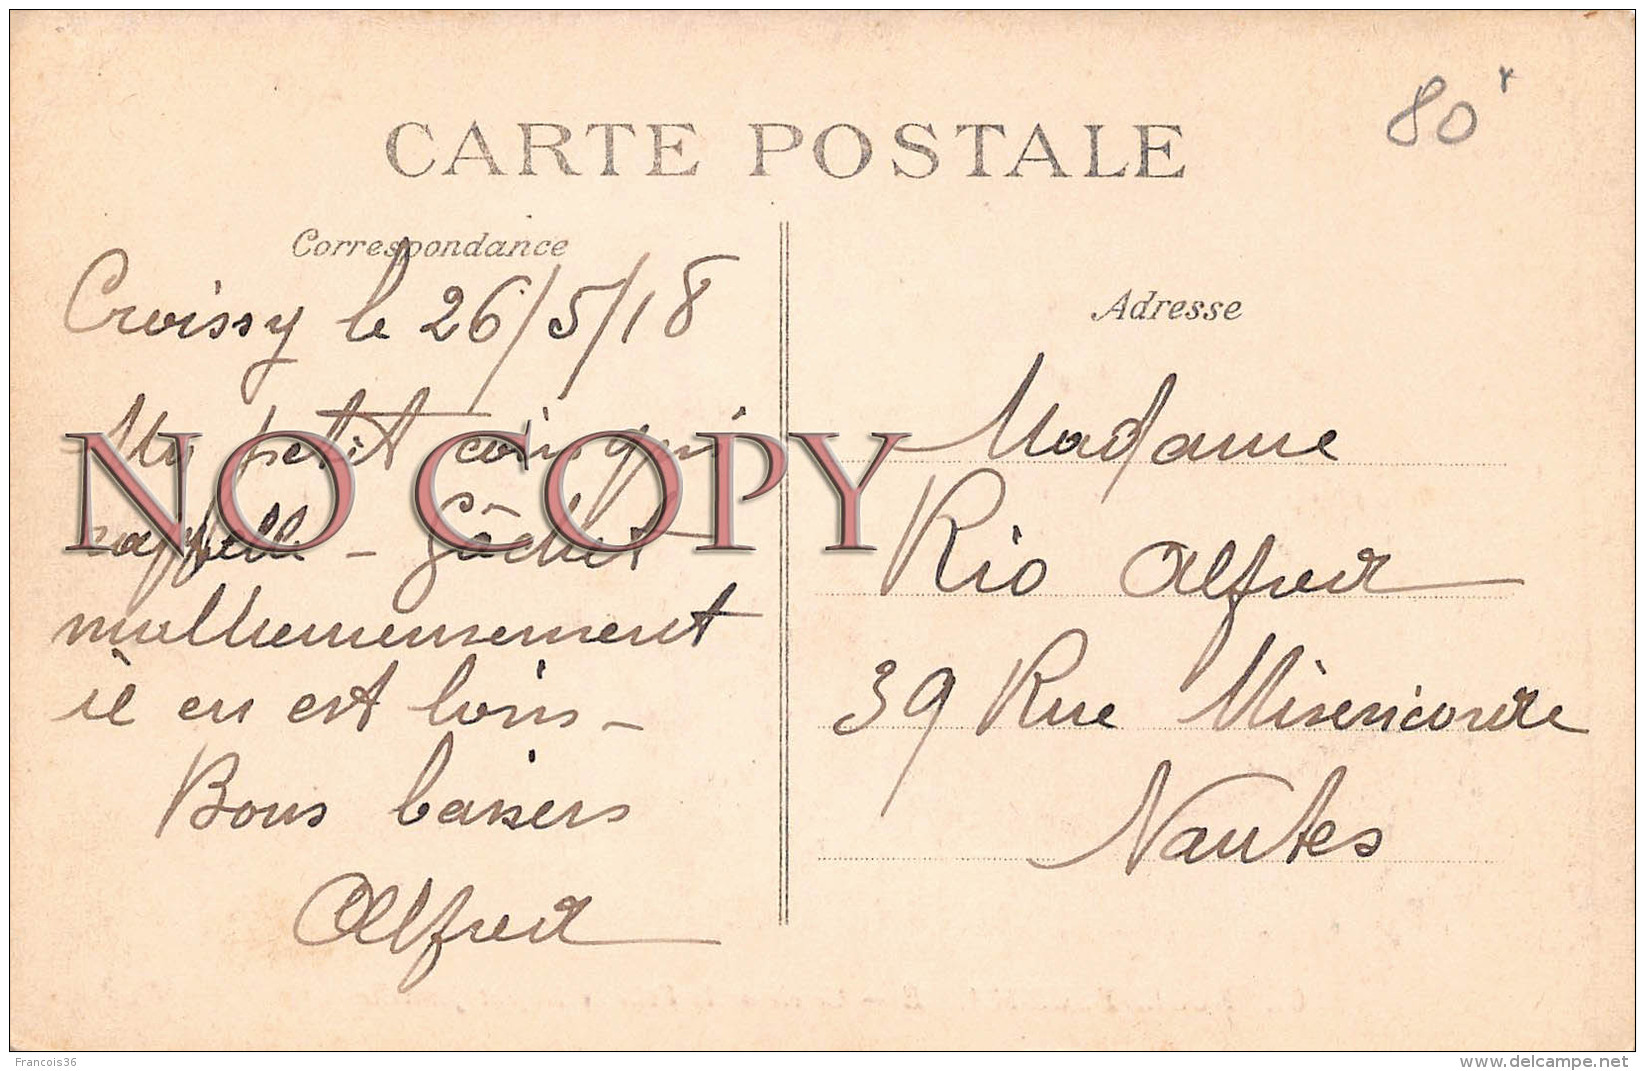 80
CARTE POSTALE
Correspondance
Croissy le 26/5/18
petit coin qui
rappelle - Gâchet
malheureusement
il en est loins -
Bons baisers
Alfred
Adresse
Madame
Rio Alfred
39 Rue Misericorde
Nantes
NO COPY
Francois36
www.delcampe.net